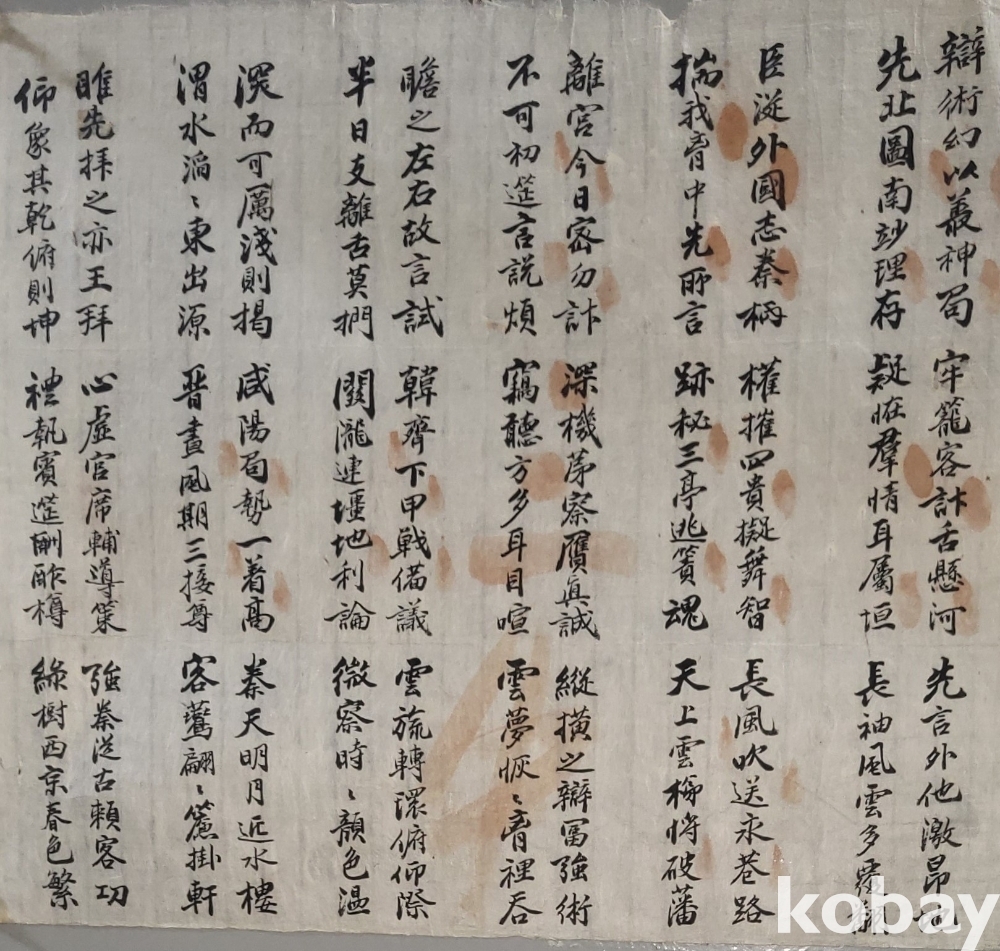 辯術幻以叢神局 牢籠客計舌懸河 先言外他激昂地
先北圖南竗理存 疑在羣情耳屬垣 長袖風雲多覆飜
臣從外國志秦柄 權摧四貴擬舞智 長風吹送永巷路
揣我胷中先所言 跡秘三亭逃簀魂 天上雲梯將破藩
離宮今日密勿計 深機茅察贗眞誠 縱橫之辯富强術
不可初筵言說煩 竊聽方多耳目喧 雲夢恢〻胷裡呑
瞻之左右故言試 韓齊下甲戰備議 雲旒轉環俯仰際
半日支離舌莫捫 關隴連壃地利論 微察時〻顔色温
深而可厲淺則揭 咸陽局勢一着高 秦天明月近水樓
渭水滔〻東出源 晉晝風期三接尊 客鶯翩〻簾掛軒
睢先拜之亦王拜 心虛官席輔導策 强秦從古賴客功
仰象其乾俯則坤 禮執賓筵酬酢樽 綠樹西京春色繁
kobay